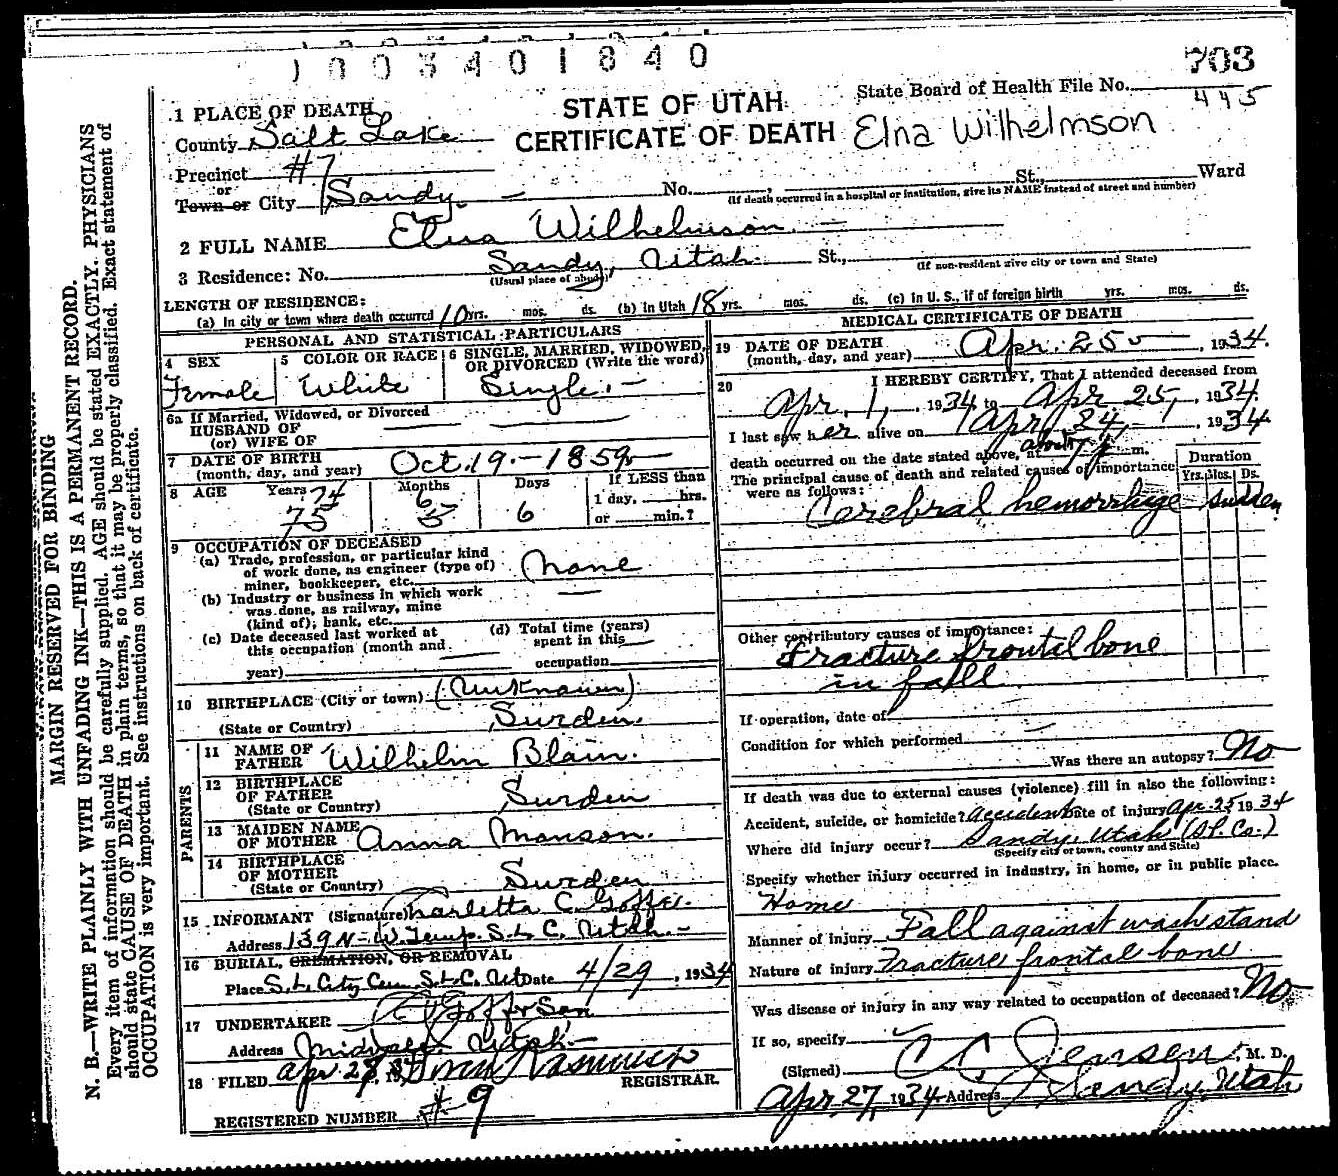 1003401840
703
State Board of Health File No.
445
1 PLACE OF DEATH
STATE OF UTAH
CERTIFICATE OF DEATH
Elna Wilhelmson
County Salt Lake
Precinct #7
or
Town or City Sandy. No. St., Ward
(If death occurred in a hospital or institution, give its NAME instead of street and number)
2 FULL NAME Elna Wilhelmson
3 Residence: No. Sandy, Utah St.,
(Usual place of abode) (If non-resident give city or town and State)
LENGTH OF RESIDENCE:
(a) In city or town where death occurred 10 yrs. mos. ds. (b) In Utah 18 yrs. mos. ds. (c) In U. S., if of foreign birth yrs. mos. ds.
PERSONAL AND STATISTICAL PARTICULARS
4 SEX
Female
5 COLOR OR RACE
White
6 SINGLE, MARRIED, WIDOWED,
OR DIVORCED (Write the word)
Single.
6a If Married, Widowed, or Divorced
HUSBAND OF
(or) WIFE OF
7 DATE OF BIRTH
(month, day, and year) Oct. 19 - 1859
8 AGE Years Months Days If LESS than
74 6
75 5 6
1 day, hrs.
or min.?
9 OCCUPATION OF DECEASED
(a) Trade, profession, or particular kind
of work done, as engineer (type of)
miner, bookkeeper, etc. None
(b) Industry or business in which work
was done, as railway, mine
(kind of); bank, etc.
(c) Date deceased last worked at
this occupation (month and
year)
(d) Total time (years)
spent in this
occupation
10 BIRTHPLACE (City or town) (Unknown)
(State or Country) Sweden.
PARENTS
11 NAME OF
FATHER Wilhelm Blain.
12 BIRTHPLACE
OF FATHER
(State or Country) Sweden
13 MAIDEN NAME
OF MOTHER Anna Monson.
14 BIRTHPLACE
OF MOTHER
(State or Country) Sweden
15 INFORMANT (Signature) Charletta C.
Address 139 N-W. Temp. S. L. C. Utah.
16 BURIAL, CREMATION, OR REMOVAL
Place S. L. City Cem. S.L.C. Ut Date 4/29, 1934
17 UNDERTAKER Goff & Son
Address Midvale, Utah
18 FILED Apr 28, 1934 Rasmussen
REGISTRAR.
REGISTERED NUMBER #9
MEDICAL CERTIFICATE OF DEATH
19 DATE OF DEATH
(month, day, and year) Apr. 25, 1934.
20 I HEREBY CERTIFY, That I attended deceased from
Apr. 1, 1934 to Apr 25, 1934.
I last saw her alive on Apr. 24, 1934
death occurred on the date stated above, at about 7 m.
The principal cause of death and related causes of importance
were as follows:
Duration
Yrs. Mos. Ds.
Cerebral hemorrhage sudden
Other contributory causes of importance:
Fracture frontal bone
in fall
If operation, date of
Condition for which performed
Was there an autopsy? No
If death was due to external causes (violence) fill in also the following:
Accident, suicide, or homicide? Accident Date of injury Apr. 25 1934
Where did injury occur? Sandy, Utah (S.L. Co.)
(Specify city or town, county and State)
Specify whether injury occurred in industry, in home, or in public place.
Home
Manner of injury Fall against wash stand
Nature of injury Fracture frontal bone
Was disease or injury in any way related to occupation of deceased? No
If so, specify
(Signed) C. C. Jensen, M. D.
Apr. 27, 1934 Address Sandy, Utah
MARGIN RESERVED FOR BINDING
N. B.—WRITE PLAINLY WITH UNFADING INK—THIS IS A PERMANENT RECORD.
Every item of information should be carefully supplied. AGE should be stated EXACTLY. PHYSICIANS
should state CAUSE OF DEATH in plain terms, so that it may be properly classified. Exact statement of
OCCUPATION is very important. See instructions on back of certificate.